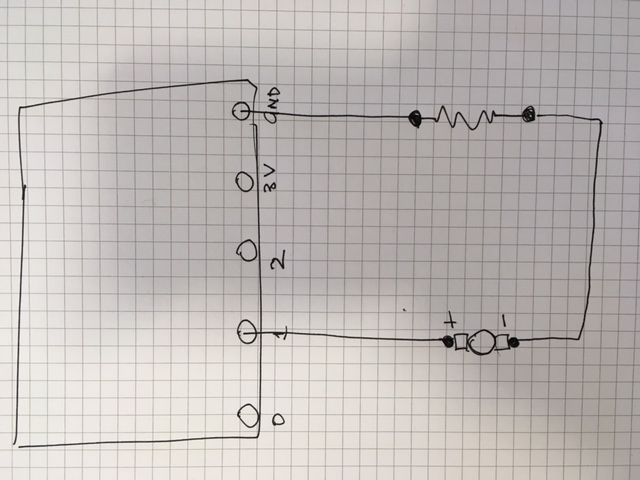 0 1 2 3V GND
+
-